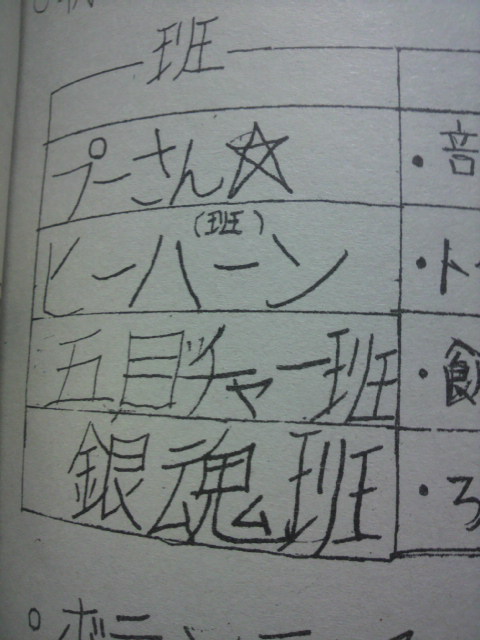 班
プーさん☆
・音
(班)
ヒーハーン
・ト
五目チャー班
・飯
銀魂班
・ろ